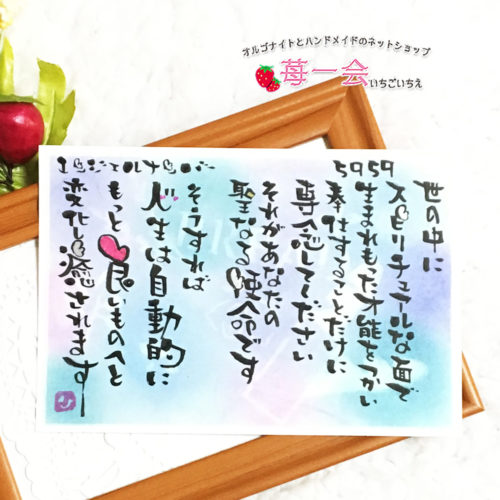 オルゴナイトとハンドメイドのネットショップ
苺一会いちごいちえ
5959
世の中に
スピリチュアルな面で
生まれもった才能をつかい
奉仕することだけに
専念してください
それがあなたの
聖なる使命です
そうすれば
人生は自動的に
もっと良いものへと
変化し癒されます
エンジェルナンバー